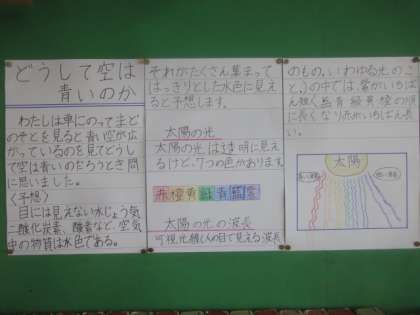 どうして空は
青いのか
わたしは車にのってまど
のそとを見ると青い空が広
がっているのを見てどうし
て空は青いのだろうとぎ問
に思いました。
〈予想〉
目には見えない水じょう気
二酸化炭素、酸素など、空気
中の物質は水色である。
それがたくさん集まって
はっきりとした水色に見え
ると予想します。
太陽の光
太陽の光はとう明に見え
るけど、7つの色があります。
赤橙黄緑青藍紫
太陽の光の波長
可視光線(人の目で見える波長
のもの。いわゆる光のこ
と。)の中では、紫がいちば
ん短く藍青緑黄橙の順
に長くなり赤がいちばん長
い。
太陽